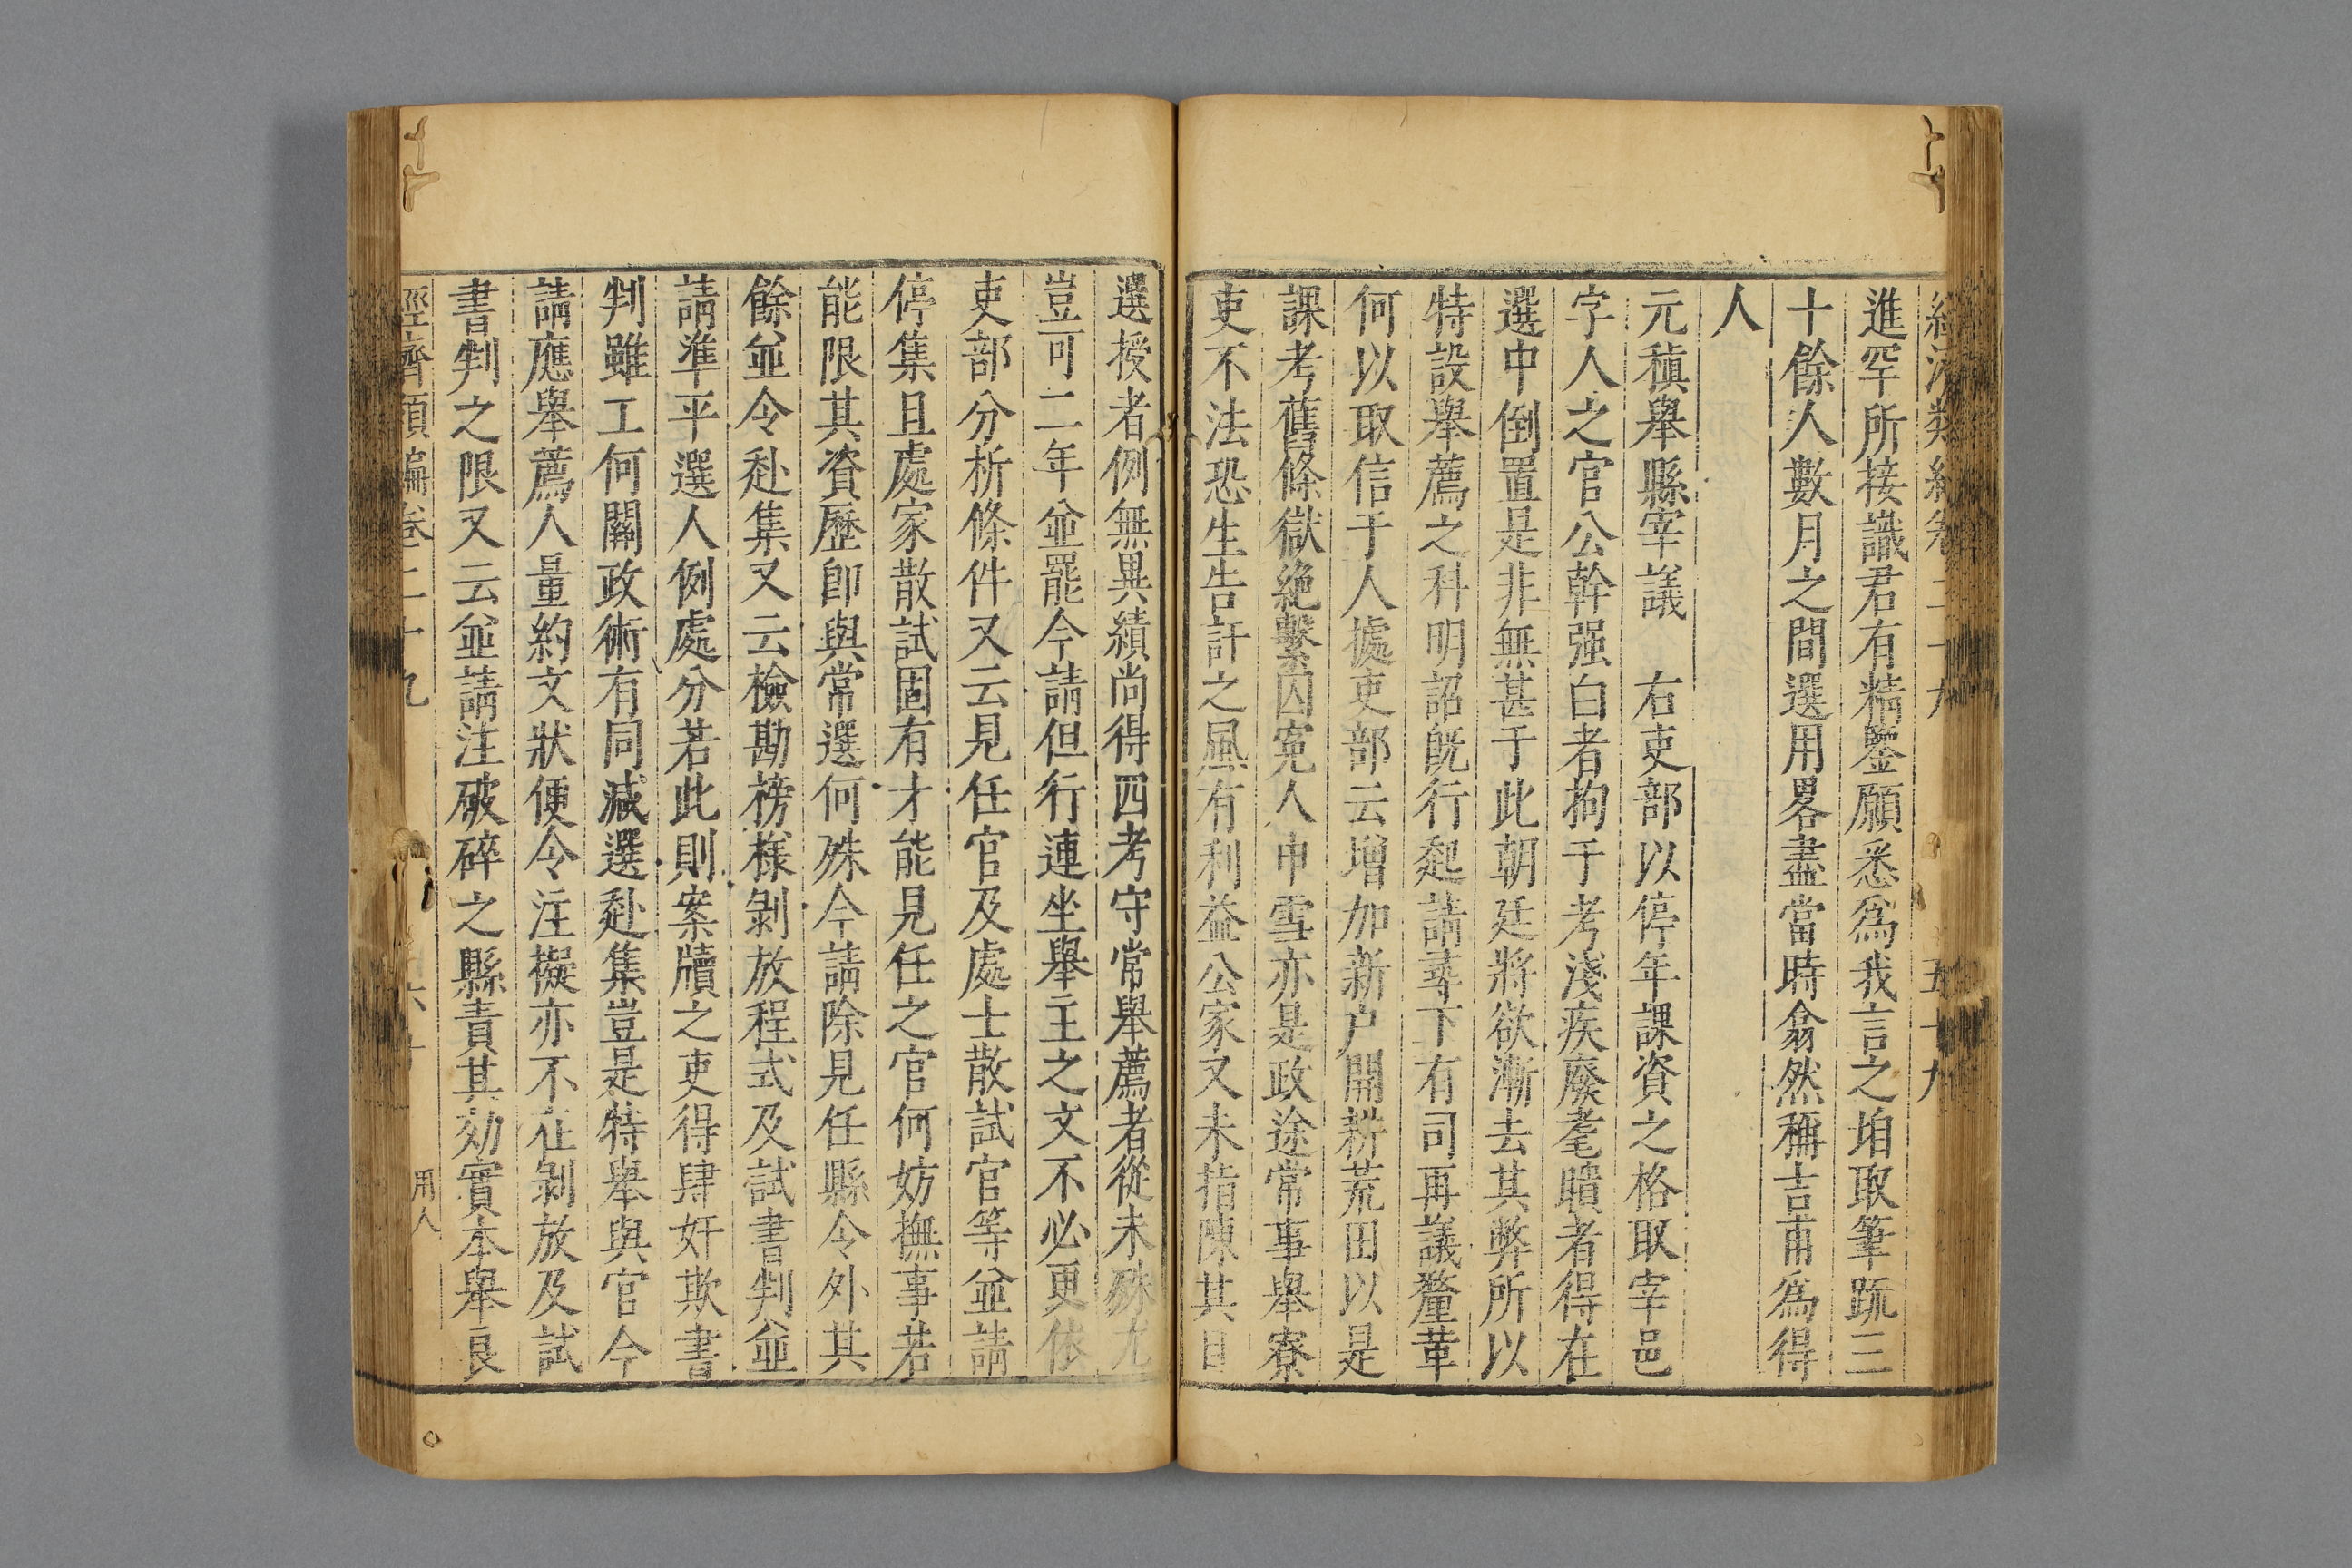 進罕所接識君有精鑒願悉爲我言之垍取筆䟽三
十餘人數月之間選用畧盡當時翕然稱吉甫爲得
人
元稹舉縣宰議　右吏部以停年課資之格取宰邑
字人之官公幹强白者拘于考淺疾廢耄瞶者得在
選中倒置是非無甚于此朝廷將欲漸去其弊所以
特設舉薦之科明詔旣行起請尋下有司再議釐革
何以取信于人據吏部云增加新户開耕荒田以是
課考舊條獄絶繫囚寃人申雪亦是政途常事舉寮
吏不法恐生告訐之風有利益公家又未指陳其目
選授者例無異績尚得四考守常舉薦者從未殊尤
豈可二年並罷今請但行連坐舉主之文不必更依
吏部分析條件又云見任官及處士散試官等並請
停集且處家散試固有才能見任之官何妨撫事若
能限其資歷卽與常選何殊今請除見任縣令外其
餘並令赴集又云檢勘榜樣剝放程式及試書判並
請準平選人例處分若此則案牘之吏得肆奸欺書
判雖工何關政術有同減選赴集豈是特舉與官今
請應舉薦人量約文狀便令注擬亦不在剝放及試
書判之限又云並請注破碎之縣責其効實本舉良
經濟類編卷二十九　用人